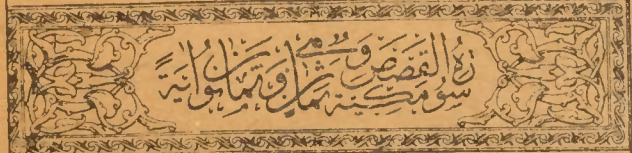 سورة القصص مكية وهي ثمان وثمانون آية